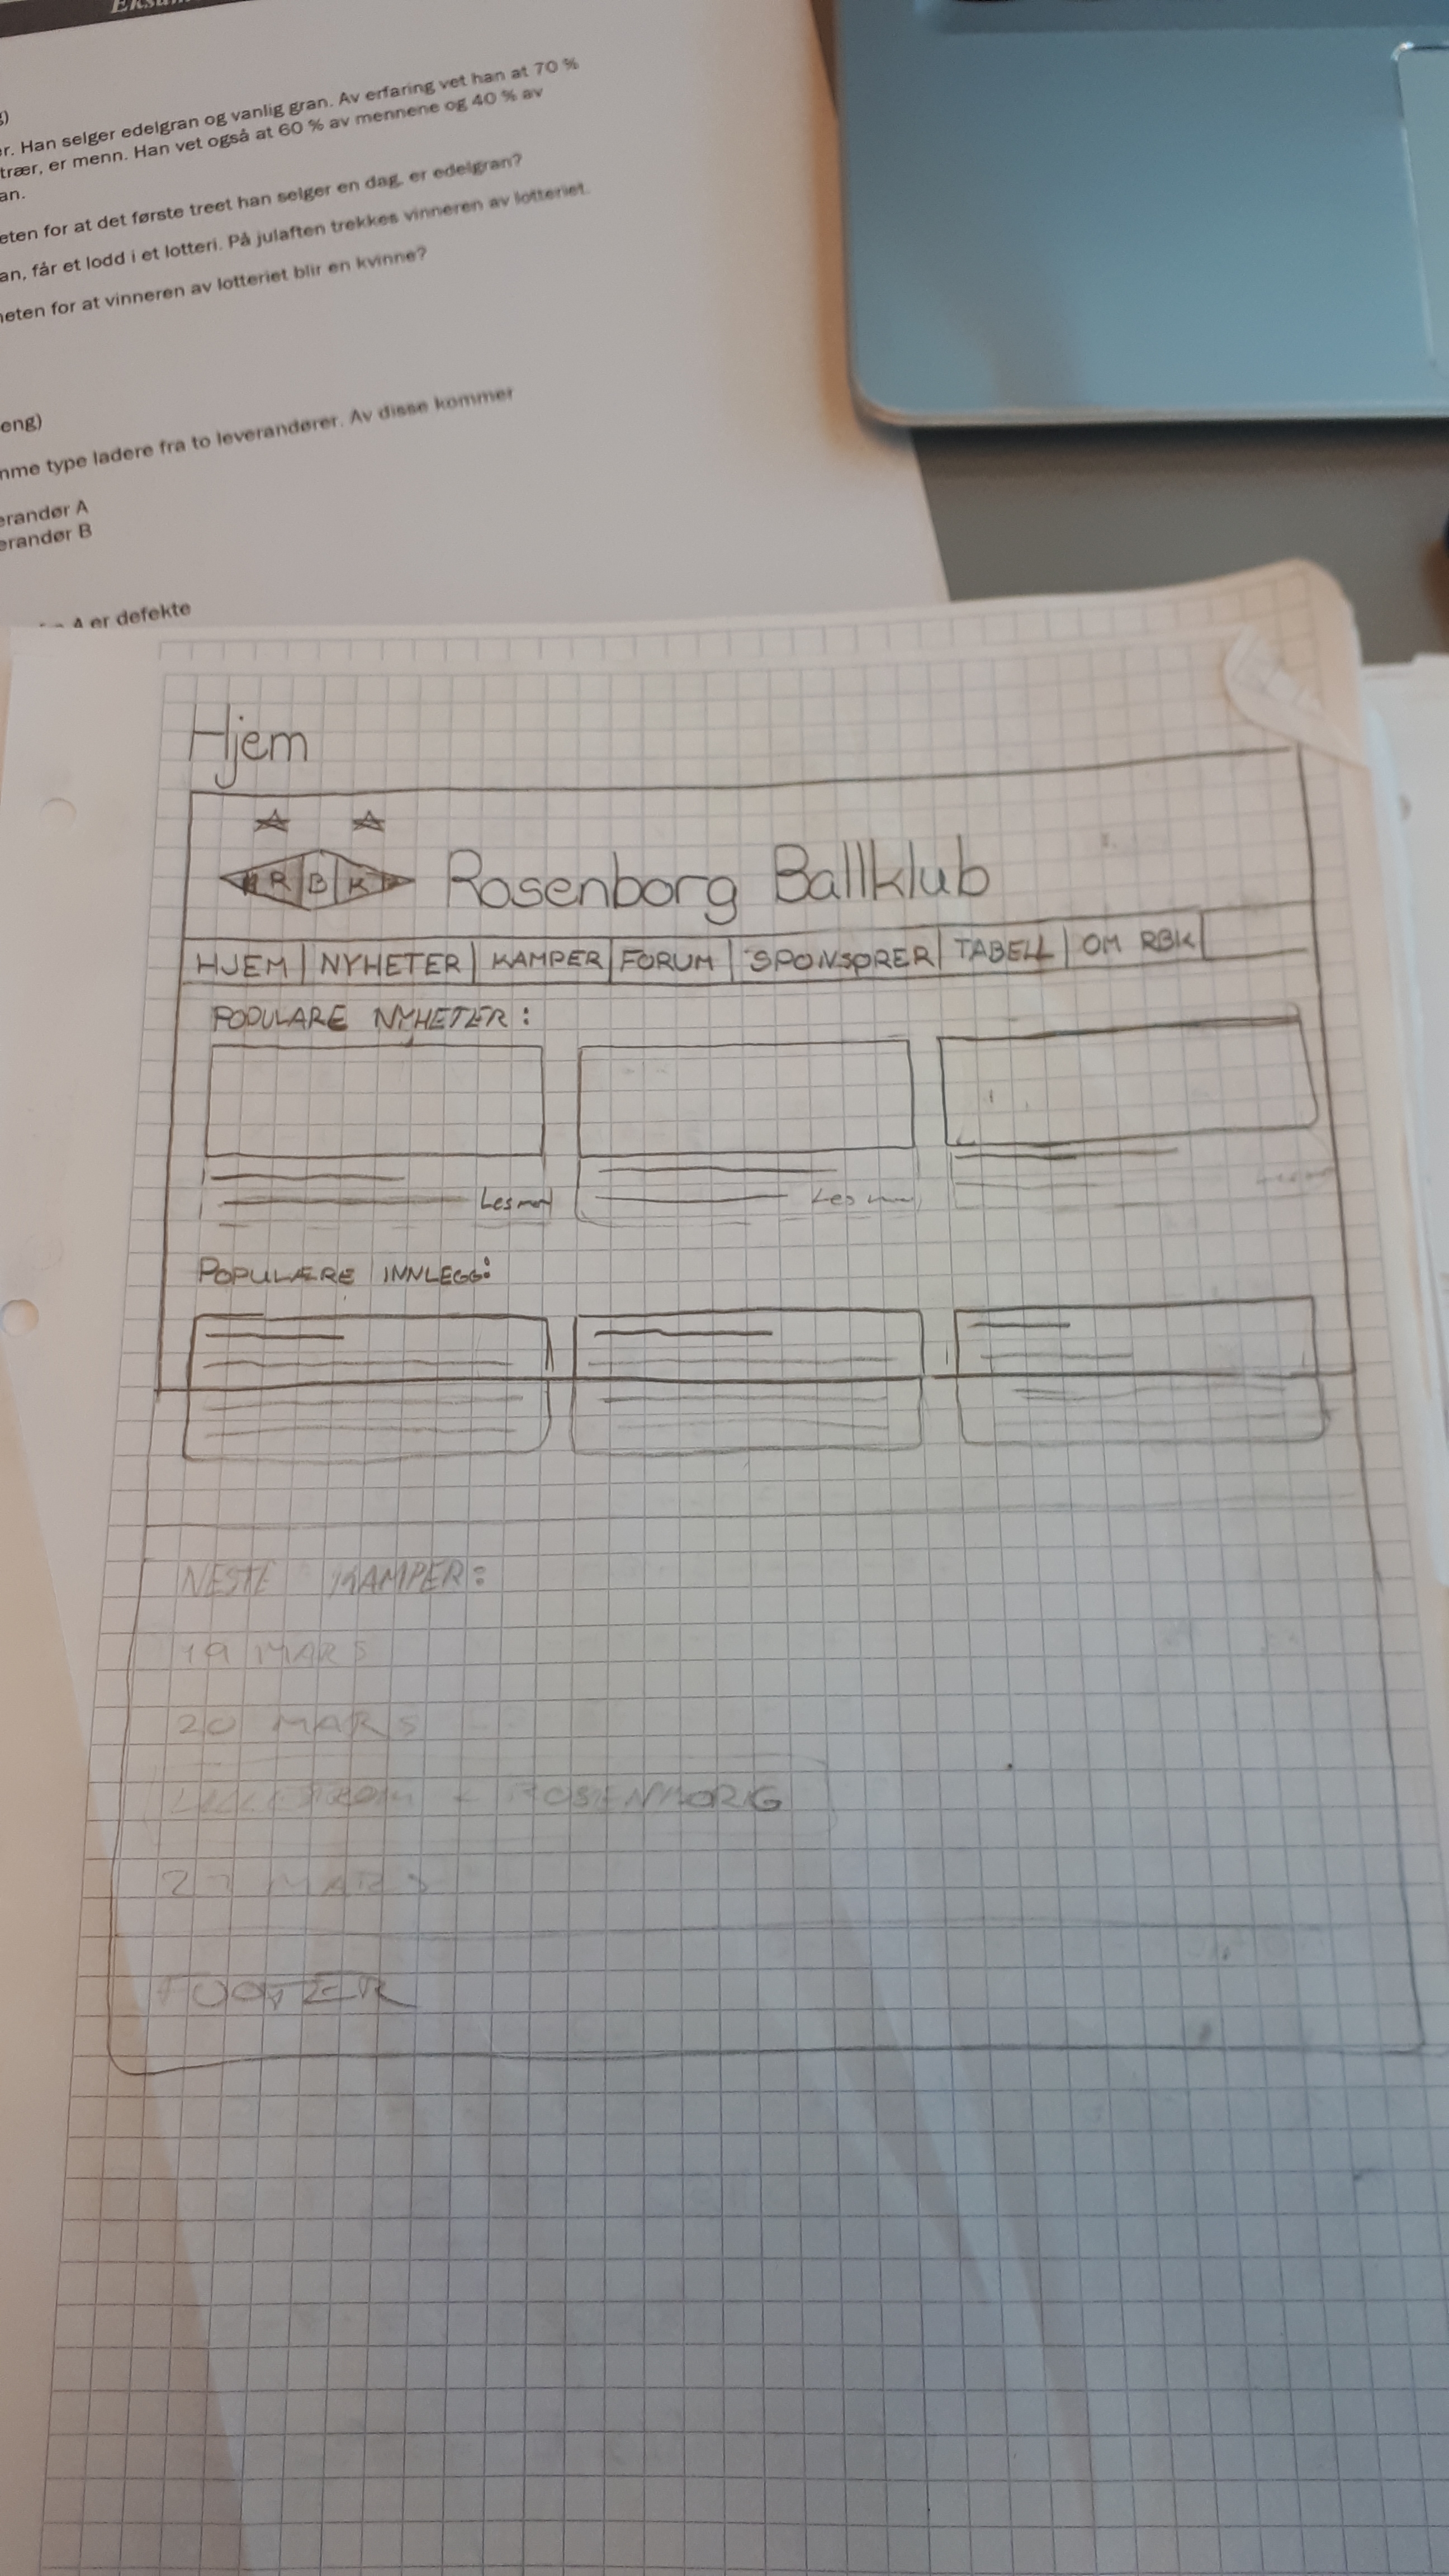 er. Han selger edelgran og vanlig gran. Av erfaring vet han at 70 %
trær, er menn. Han vet også at 60 % av mennene og 40 % av
an.
eten for at det første treet han selger en dag, er edelgran?
an, får et lodd i et lotteri. På julaften trekkes vinneren av lotteriet.
heten for at vinneren av lotteriet blir en kvinne?
eng)
mme type ladere fra to leverandører. Av disse kommer
erandør A
erandør B
A er defekte
Hjem
RBK Rosenborg Ballklub
HJEM NYHETER KAMPER FORUM SPONSORER TABELL OM RBK
POPULARE NYHETER:
Les mer Les mer
POPULÆRE INNLEGG:
NESTE KAMPER:
19 MARS
20 MARS
- ROSENBORG
MARS
FOOTER